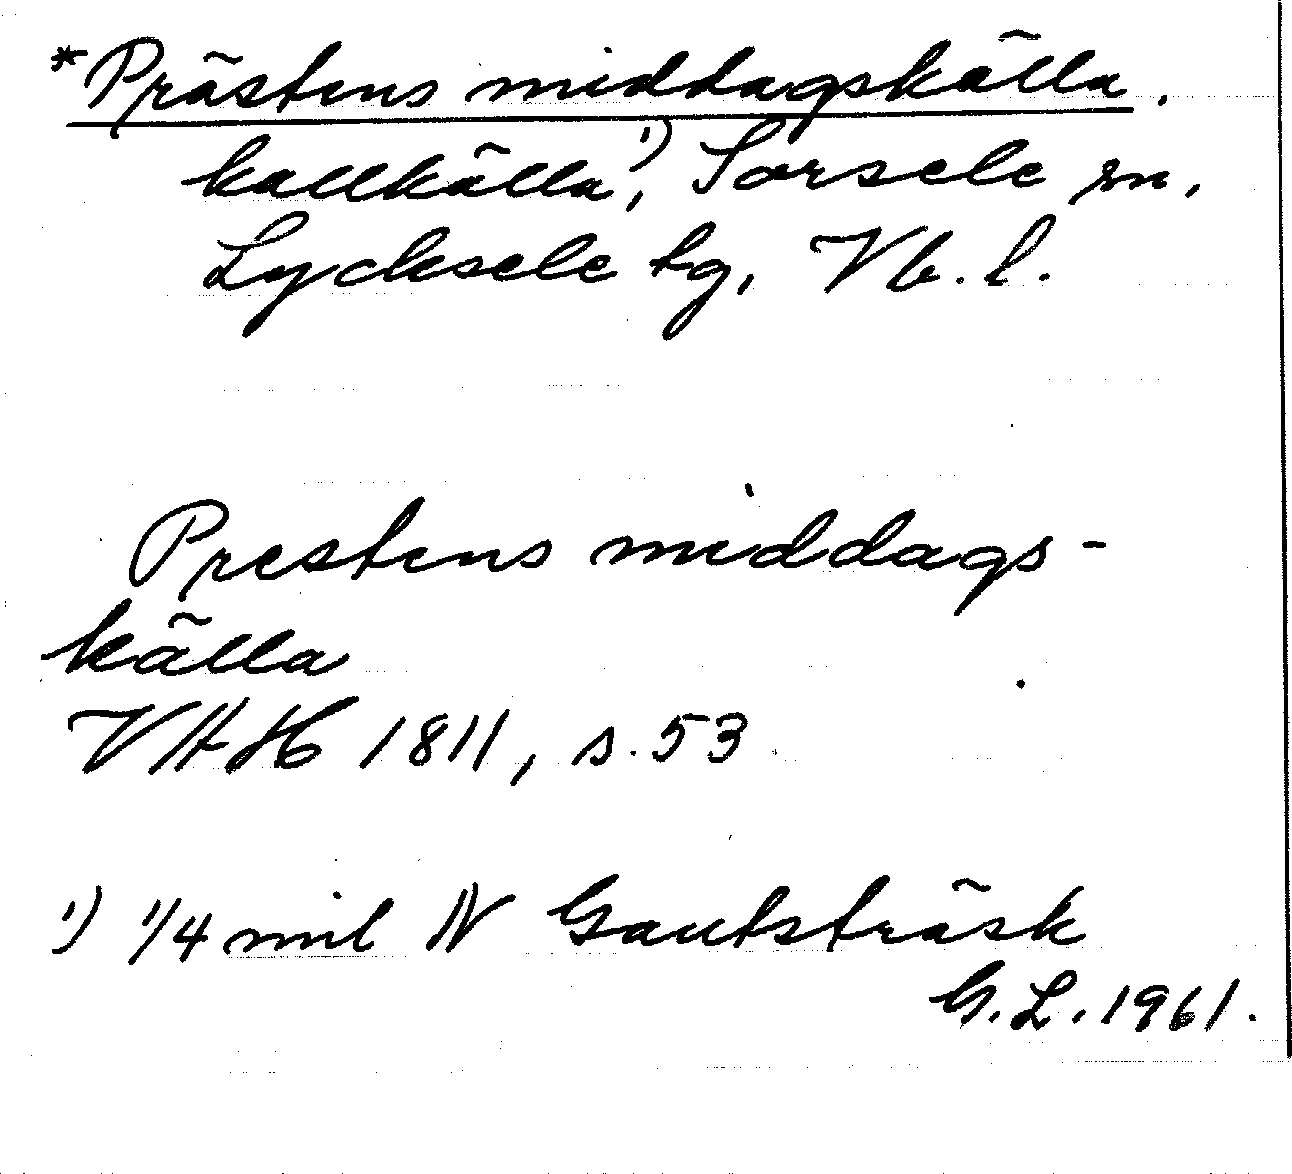 *Prästens middagskälla,
kallkälla¹⁾, Sorsele sn,
Lycksele tg, Vb. l.
Prestens middags-
källa
VHAH 1811, s. 53
1) 1/4 mil N Gautsträsk
G. L. 1961.